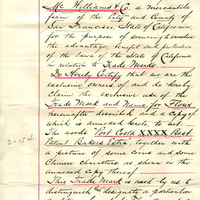 Mc Williams & Co. a mercantile
firm of the City and County of
San Francisco, State of California
for the purpose of securing to ourselves
the advantage, benefit and protection
of the laws of the State of California
in relation to Trade Marks
Do Hereby Certify that we are the
exclusive owners of, and do hereby
claim the exclusive use of the
Trade Mark and Name for Flour
hereinafter described, and a copy of
which is annexed hereto, to wit:
The words "Port Costa XXXX Best
Patent Bakers Extra", together with
a picture of some coins and some
Chinese characters as shown in the
annexed copy thereof
This Trade Mark is used by us to
distinguish & designate a particular